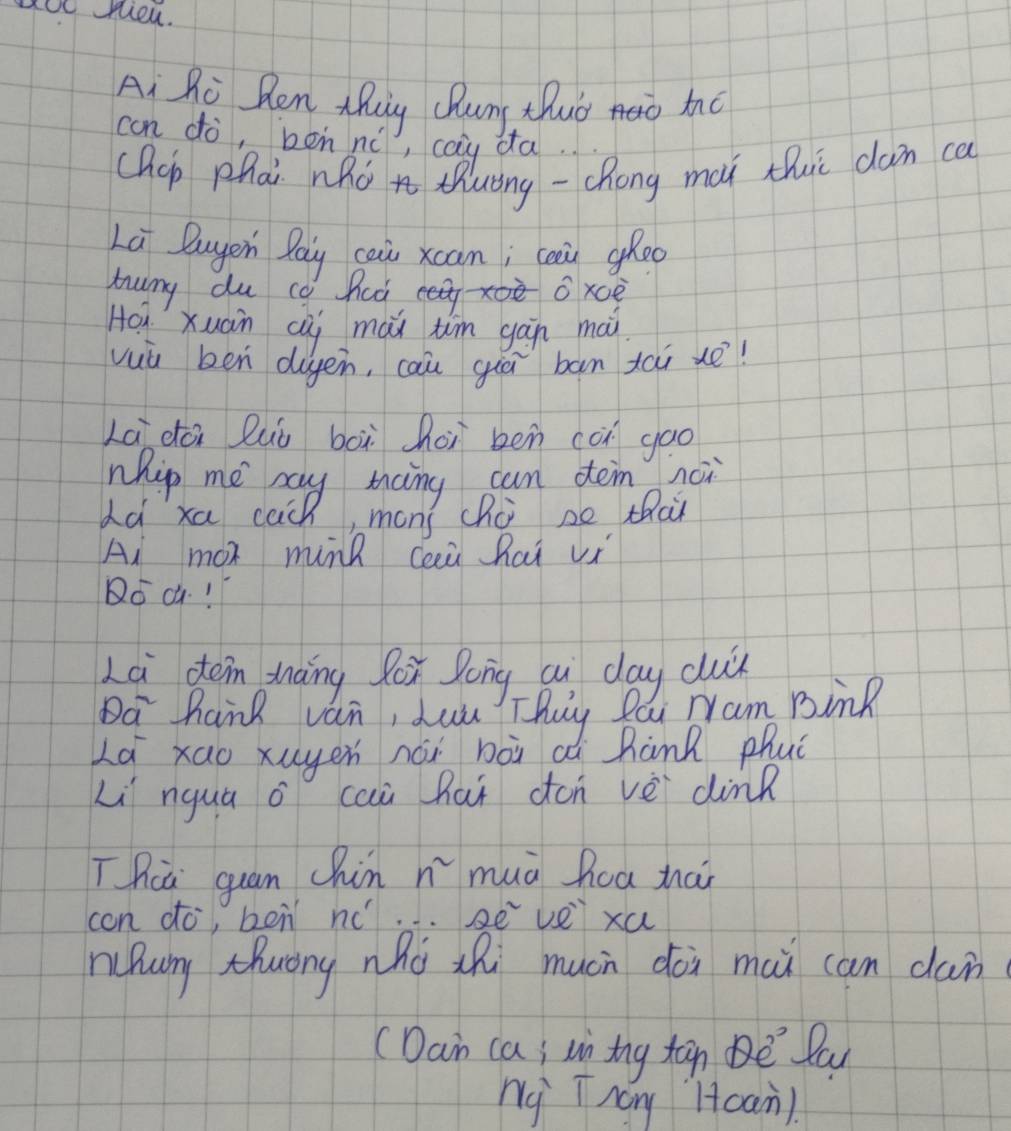 Đọc hiểu.
Ai hò hẹn thủy chung thuở nào trc
con đò, bến nc, cây đa...
Chớp phải nhớ thương - chong mắt thức dân ca
Là luyến láy câu xoan, câu ghẹo
trung du cọ hoá cây xoè ô xoè
Hội xuân ấy mắt tìm gặp mắt
vừa bén duyên, câu giã bạn tái tê!
Là đắm lưu bồi hồi bên cối gạo
nhịp mê say trăng cạn đêm rồi
Là xa cách, mong chờ se thắt
Ai một mình câu hát ví
Đò ơi!
Là đêm trăng lỗi lòng ai day dứt
Đã hành vân, Lưu Thủy lại Nam Bình
Là xao xuyến nói bởi ai hạnh phúc
Lí ngựa ô câu hát đón về dinh
Thời gian chín n~ mùa hoa trái
con đò, bến nc... sẽ về xa
nhưng thương nhớ thì muôn đời mắc cạn dân
(Dân ca, in trg tập Để lại
Ng~ Trọng Hoàn).